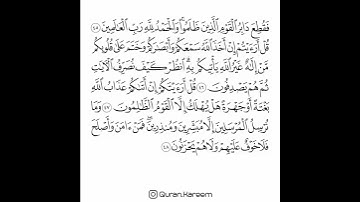 فَقُطِعَ دَابِرُ ٱلْقَوْمِ ٱلَّذِينَ ظَلَمُوا۟ وَٱلْحَمْدُ لِلَّهِ رَبِّ ٱلْعَٰلَمِينَ ٤٥
قُلْ أَرَءَيْتُمْ إِنْ أَخَذَ ٱللَّهُ سَمْعَكُمْ وَأَبْصَٰرَكُمْ وَخَتَمَ عَلَىٰ قُلُوبِكُم
مَّنْ إِلَٰهٌ غَيْرُ ٱللَّهِ يَأْتِيكُم بِهِ ٱنظُرْ كَيْفَ نُصَرِّفُ ٱلْءَايَٰتِ
ثُمَّ هُمْ يَصْدِفُونَ ٤٦ قُلْ أَرَءَيْتَكُمْ إِنْ أَتَىٰكُمْ عَذَابُ ٱللَّهِ
بَغْتَةً أَوْ جَهْرَةً هَلْ يُهْلَكُ إِلَّا ٱلْقَوْمُ ٱلظَّٰلِمُونَ ٤٧ وَمَا
نُرْسِلُ ٱلْمُرْسَلِينَ إِلَّا مُبَشِّرِينَ وَمُنذِرِينَ فَمَنْ ءَامَنَ وَأَصْلَحَ
فَلَا خَوْفٌ عَلَيْهِمْ وَلَا هُمْ يَحْزَنُونَ ٤٨
Quran.Kareem